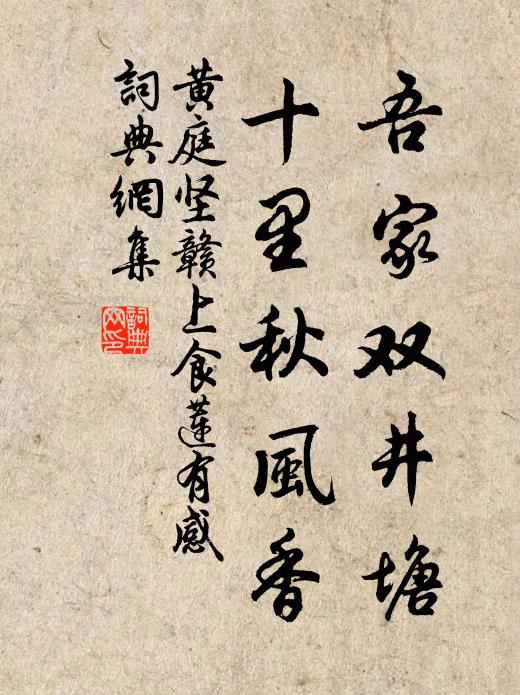 吾家双井塘
十里秋風香
黄庭坚贛上食蓮有感
詞典網集
詞典网印